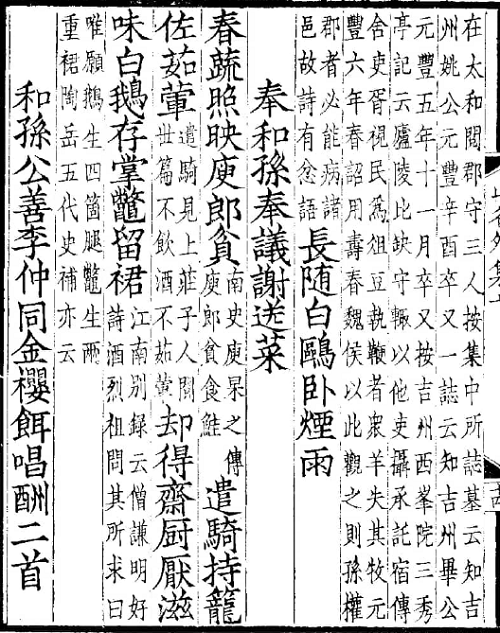 在太和閱郡守三人按集中所誌墓云知吉
州姚公元豐辛酉卒又一誌云知吉州畢公
元豐五年十一月卒又按吉州西峯院三秀
亭記云廬陵比缺守輙以他吏攝承託宿傳
舍吏胥視民爲俎豆執鞭者衆羊失其牧元
豐六年春詔用壽春魏侯以此觀之則孫權
郡者必能病諸
邑故詩有忿語
長随白鷗卧煙雨
奉和孫奉議謝送菜
春蔬照映庾郎貧
南史庾杲之傳
庾郎貧食鮭
遣騎持籠
佐茹葷
遣騎見上莊子人間
丗篇不飲酒不茹葷
却得齋厨厭滋
味白鵝存掌鼈留裙
江南别録云僧謙明好
詩酒烈祖問其所求曰
唯願鵝生四箇腿鼈生兩
重裙陶岳五代史補亦云
和孫公善李仲同金櫻餌唱酬二首